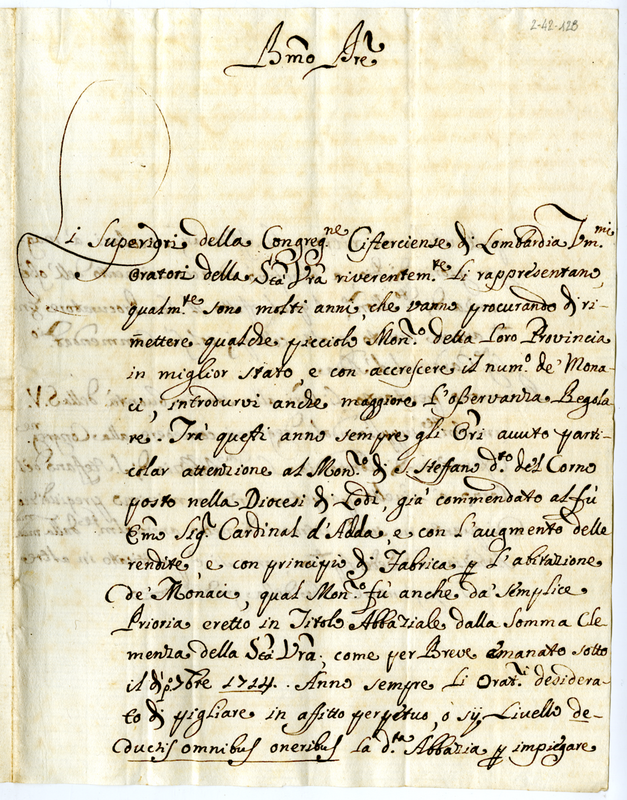 2-42-128
Bmo Pre
i Superiori della Congreg.ne Cisterciense di Lombardia Vm.mi
Oratori della Stà Vrã riverentem.te Li rappresentano,
qualm.te sono molti anni, che vanno procurando di ri-
mettere qualche picciolo Mon.o della Loro Provincia
in miglior stato, e con accrescere il num.o de' Mona-
ci, introdurvi anche maggiore L'osservanza Regola
re. Trà questi anno sempre gli Ori avuto parti-
colar attenzione al Mon.o di S. Steffano d.to del Corno
posto nella Diocesi di Lodi, già commendato al fù
Emo Sig.r Cardinal d'Adda, e con L'augmento delle
rendite, e con principio di Fabrica p L'abitazione
de' Monaci, qual Mon.o fù anche da semplice
Prioria eretto in Titolo Abbaziale dalla Somma Cle-
menza della Stà Vrã, come per Breve emanato sotto
il dì p.o 7bre 1714. Anno sempre Li Orat.i desidera-
to di pigliare in affitto perpetuo, ò sij Livello de-
ductis omnibus oneribus la d.ta Abbazia p impiegare